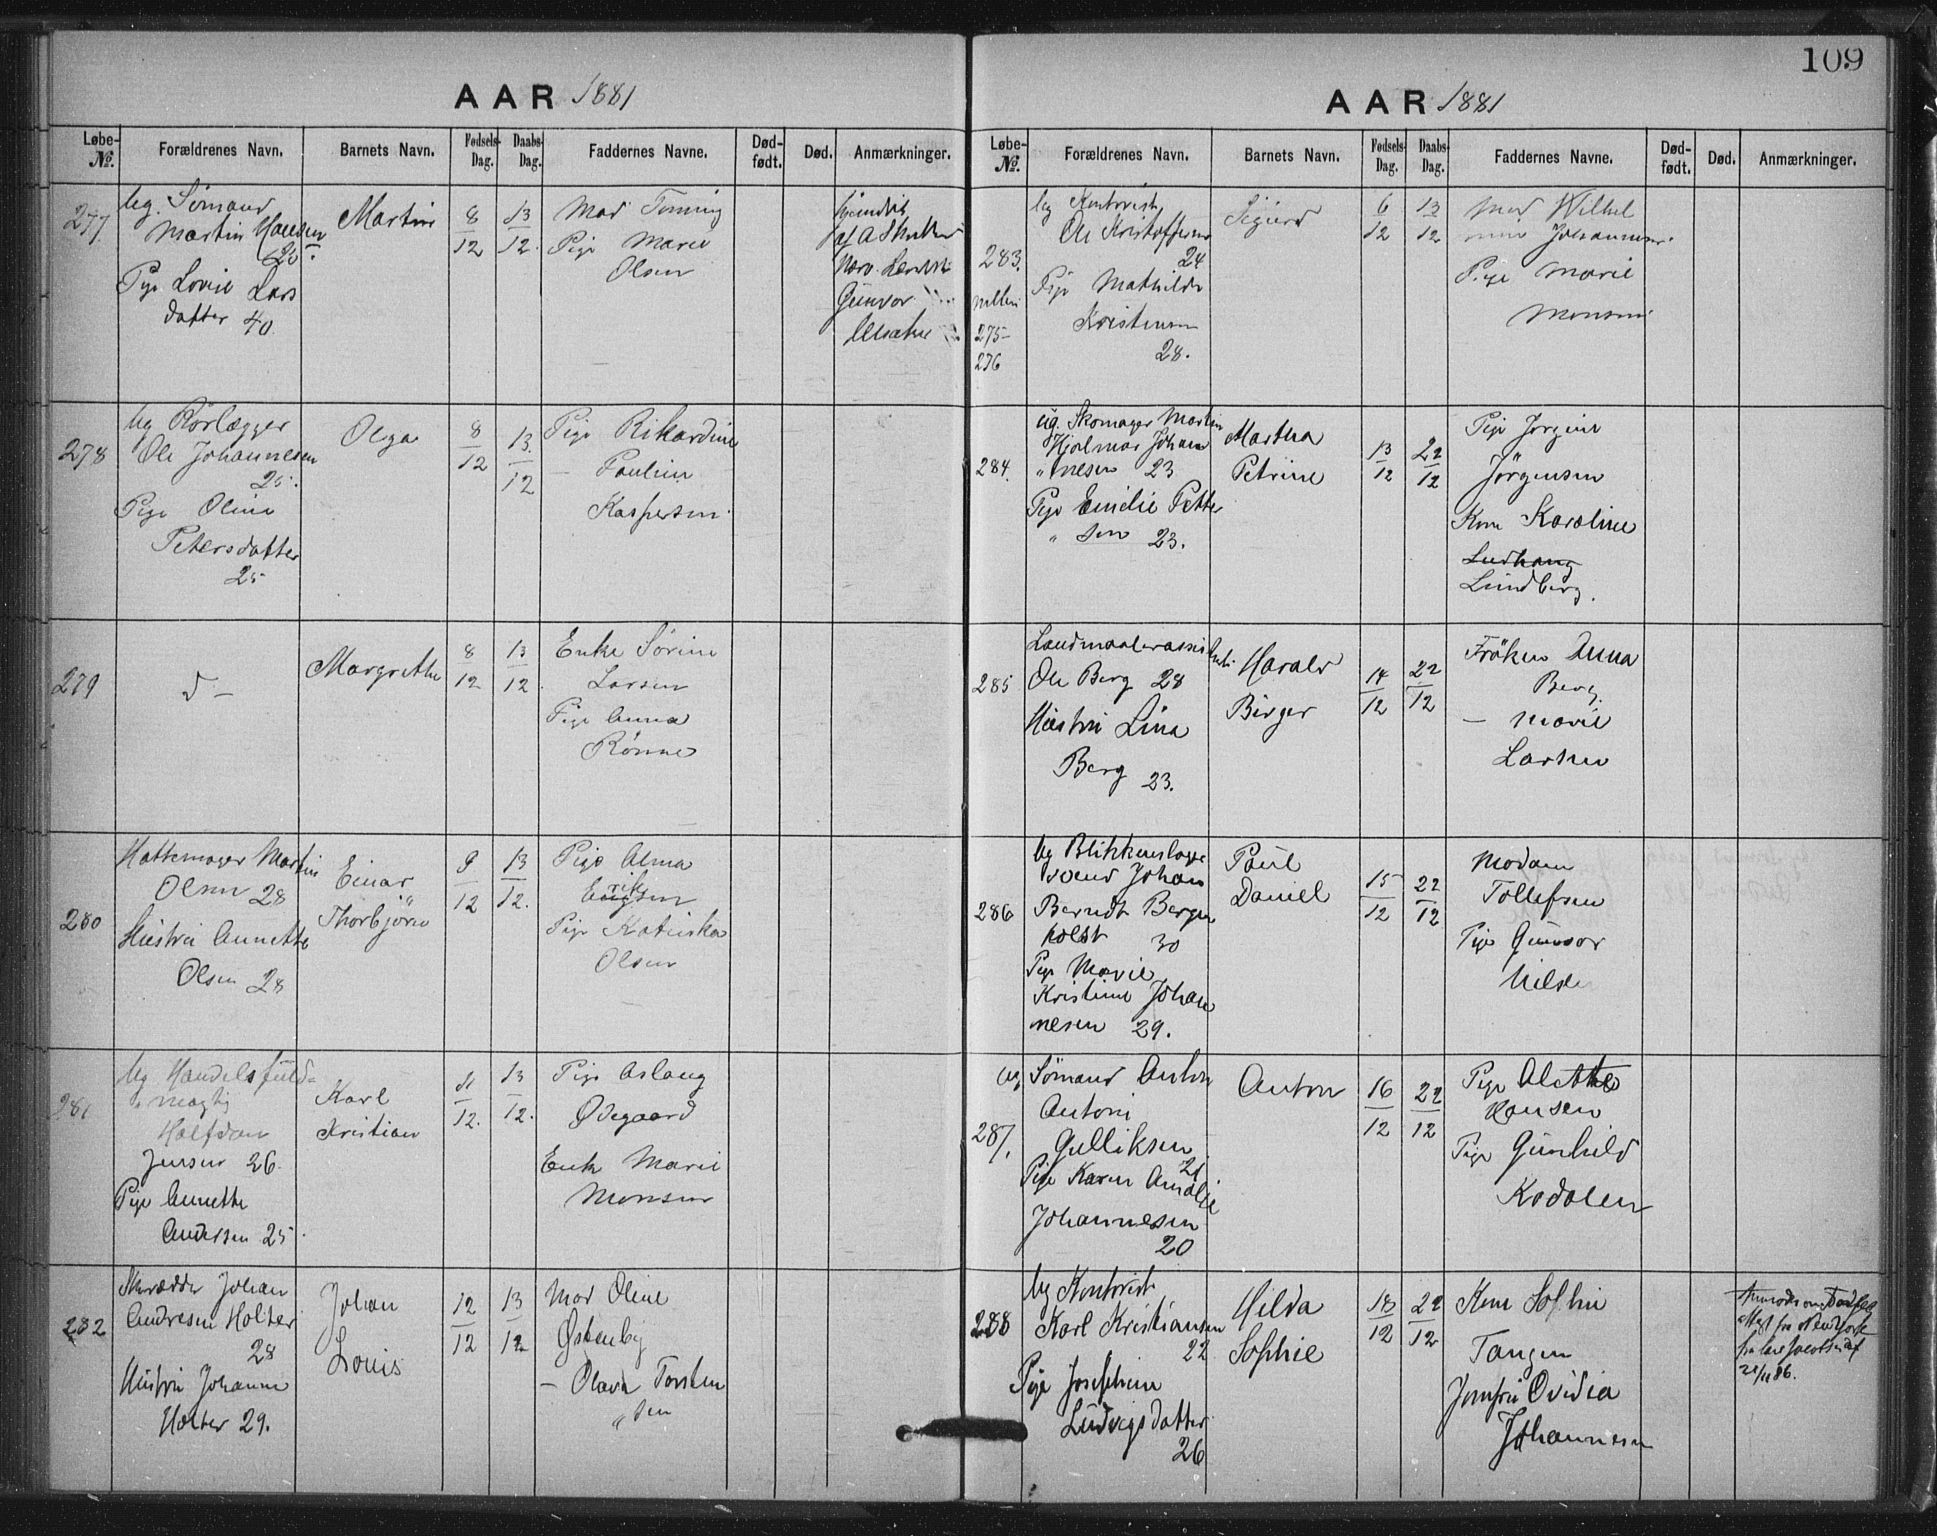 109
AAR 1881
Løbe-№. Forældrenes Navn. Barnets Navn. Fødsels-Dag. Daabs-Dag. Faddernes Navne. Død-født. Død. Anmærkninger.
277.
ug. Sømand
Martin Hansen
25.
Pige Lovise Lars
datter 40
Martin
8/12
13/12.
Mad
Pige Marie
Olsen
Gunvor
278
ug Rörlægger
Ole Johannesen
25.
Pige Oline
Petersdatter
25
Olga
8/12
13./12
Pige Rikardine
— Pauline
Kaspersen.
279
d —
Margrethe
8/12
13/12.
Enke Sørine
Larsen
Pige Anna
Rönne
280
Hattemager Martin
Olsen 28
Hustru Annette
Olsen 28
Einar
Thorbjörn
9/12
13/12.
Pige Alma
Eriksen
Pige Katinka
Olsen
281
ug Handelsfuld-
mægtig
Halfdan
Jensen 26.
Pige Annette
Andersen 25.
Karl
Kristian
11/12.
13/12.
Pige Aslaug
Ødegaard
Enke Marie
Monsen
282
Skrædder Johan
Andresen Holter
28
Hustru Johanne
Holter 29.
Johan
Louis
12/12
13/12
Mad Oline
Østenby
— Olava Torsten
" sen
AAR 1881
Løbe-№. Forældrenes Navn. Barnets Navn. Fødsels-Dag. Daabs-Dag. Faddernes Navne. Død-født. Død. Anmærkninger.
283.
mellem
275-
276
ug Kontorist
Ole Kristoffersen
24
Pige Mathilde
Kristensen
28.
Sigurd
6/12
13/12
Mad Wilhel
mine Johannesen.
Pige Marie
Monsen
284.
ug. Skomager Martin
Hjalmar Johan
" nesen 23
Pige Emilie Petter
" sen 23.
Martha
Petrine
13/12
22/12
Pige Jorgine
Jörgensen
Kone Karoline
Lundberg.
285
Landmaalerassistent
Ole Berg 28
Hustru Lina
Berg 23.
Harald
Birger
14/12
22/12
Fröken Anna
Berg.
— Marie
Larsen
286
ug Blikkenslager
svend Johan
Berndt Bergen
holst 30
Pige Marie
Kristine Johan
nesen 29.
Paul
Daniel
15/12
22/12
Madam
Tollefsen
Pige Gunvor
Nilsen
287.
ug. Sømand Anton
Antoni
Gulliksen
21
Pige Karen Amalie
Johannesen
20
Anton
16/12
22/12
Pige Alette
Hansen
Pige Gunhild
Kodalen
288
ug Kontorist
Karl Kristiansen
22
Pige Josefine
Ludvigsdatter
26
Hilda
Sophie
18/12
22/12
Kone Sofie
Tangen
Jomfru Ovidia
Johannesen
fra New York